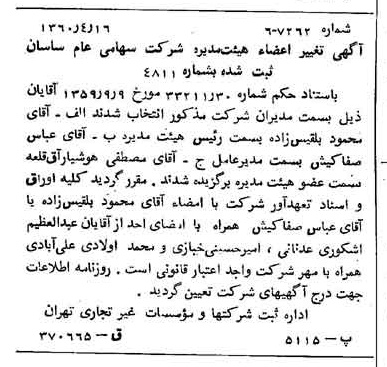 شماره ۷۲۶۲-۶ ۱۳۶۰/۴/۱۶
آگهی تغییر اعضاء هیئت‌مدیره شرکت سهامی عام ساسان
ثبت شده بشماره ۴۸۱۱
باستناد حکم شماره ۳۳۲۱۱/۳۰ مورخ ۱۳۵۹/۹/۹ آقایان
ذیل بسمت مدیران شرکت مذکور انتخاب شدند الف - آقای
محمود بلقیس‌زاده بسمت رئیس هیئت مدیره ب - آقای عباس
صفاکیش بسمت مدیرعامل ج - آقای مصطفی هوشیارآق‌قلعه
بسمت عضو هیئت مدیره برگزیده شدند . مقرر گردید کلیه اوراق
و اسناد تعهدآور شرکت با امضاء آقای محمود بلقیس‌زاده یا
آقای عباس صفاکیش همراه با امضای احد از آقایان عبدالعظیم
اشکوری عدنانی ، امیرحسنی‌خبازی و محمد اولادی علی‌آبادی
همراه با مهر شرکت واجد اعتبار قانونی است . روزنامه اطلاعات
جهت درج آگهیهای شرکت تعیین گردید .
اداره ثبت شرکتها و مؤسسات غیر تجاری تهران
پ - ۵۱۱۵ ق - ۳۷۰۶۶۵